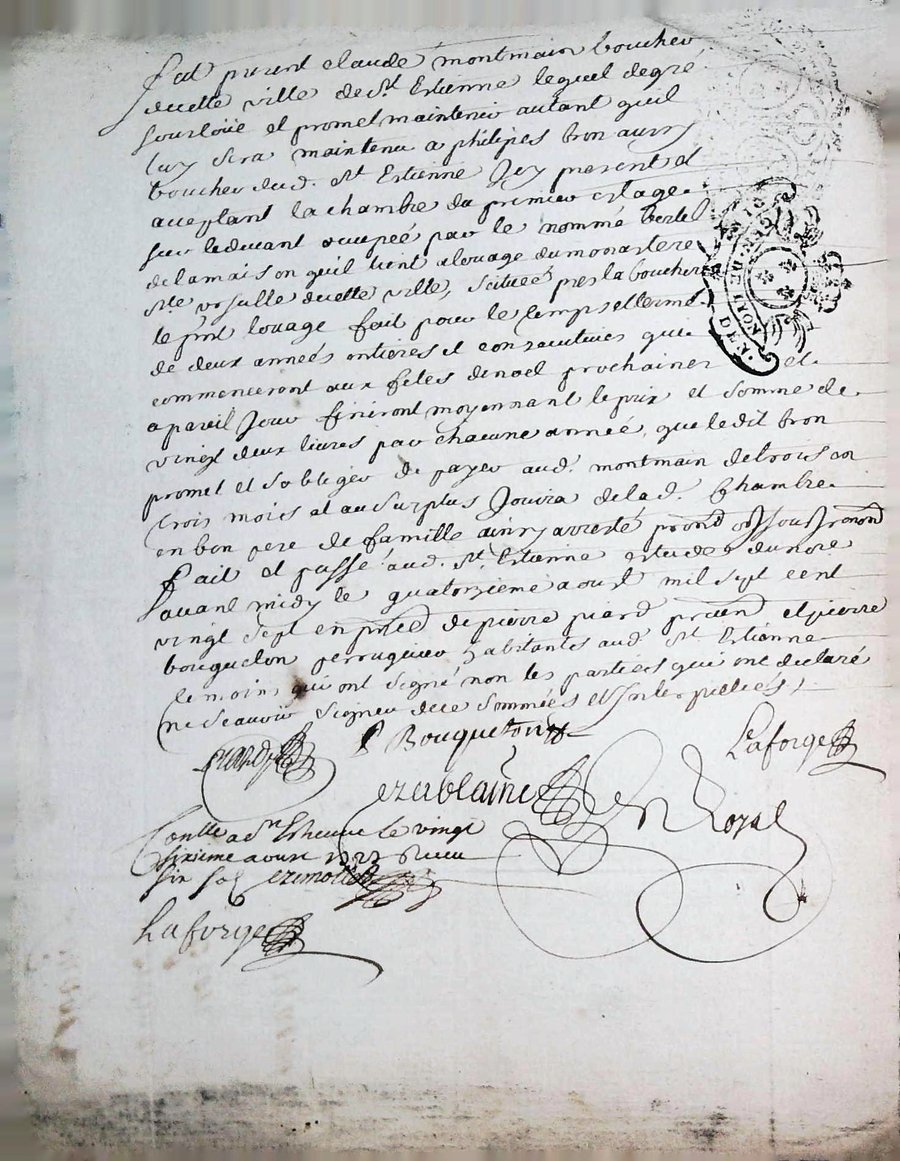 fut present claude montmain boucher
de cette ville de St Estienne lequel de gre
sourloüe et promet maintenir autant quil
luy sera maintenu a philipes bron aussy
boucher dud. St Estienne Icy present et
aceptant la chambre du premier estage
sur le devant occupeé par le nommé bertel
de la maison quil tient a louage du monastere
Ste vrsulle de cette ville, scitueé pres la boucherie
le pnt louage fait pour le temps et terme
de deux anneés entieres et consecutives qui
commenceront aux fetes de noel prochaines et
a pareil Jour finiront moyennant le prix et somme de
vingt deux livres par chacune anneé, que ledit bron
promet et soblige de payer aud. montmain de trois en
trois mois et au surplus Jouira de lad. Chambre
en bon pere de famille ainsy arresté
fait et passé aud. St Estienne estude du nore
avant midy le quatorzieme aoust mil sept cent
vingt sept en pnce de pierre et pierre
bouqueton perruquier habitants aud St Estienne
temoins qui ont signé non les parties qui ont declaré
ne scavoir signer de ce sommeés et Interpelleés
P Bouqueton
Laforge
ezablaine
Royal
Conlle a St Estienne le vingt
sixieme aoust 1727 Receu
six sols
Laforge
GEN. DE LYON